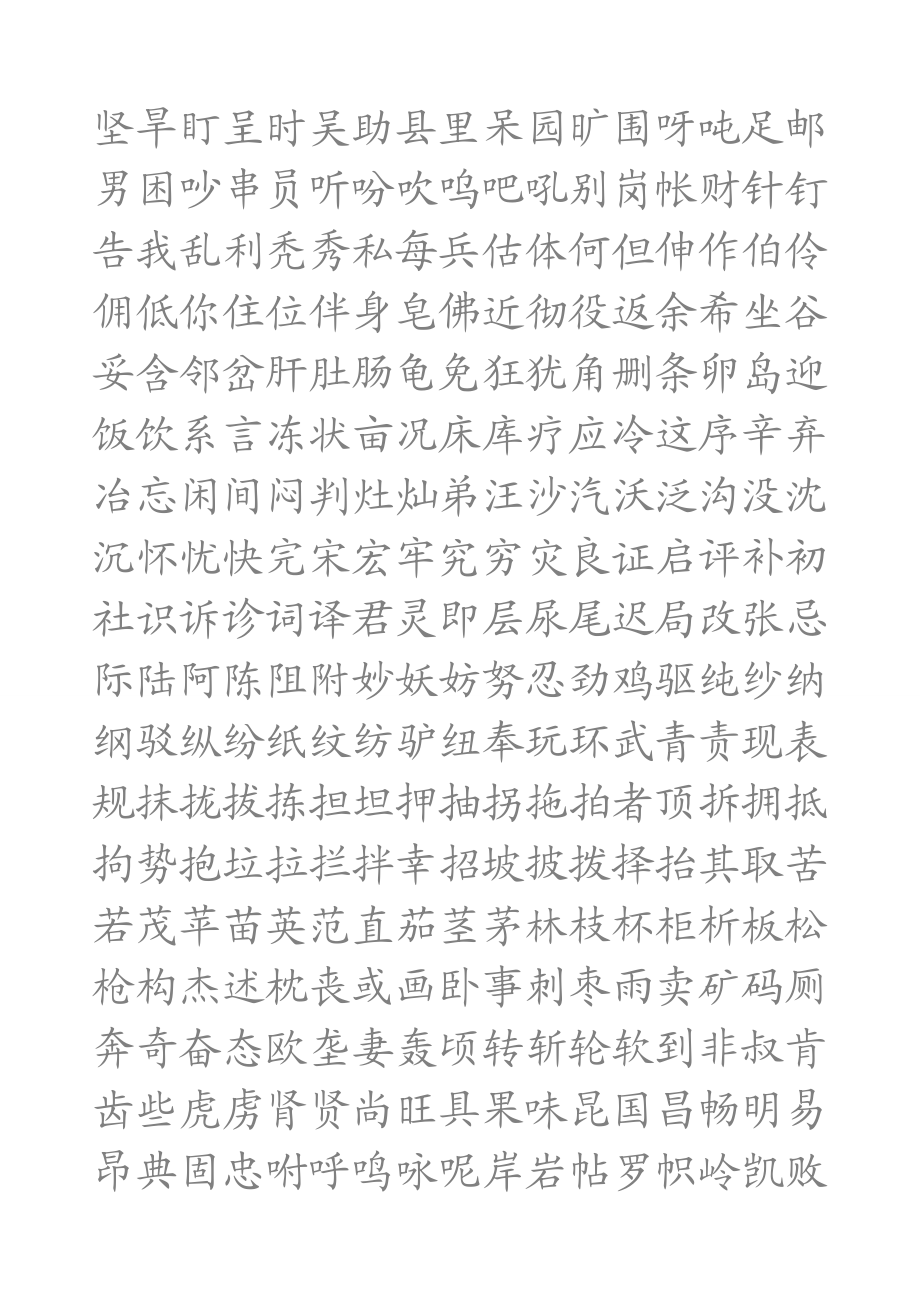 坚旱盯呈时吴助县里呆园旷围呀吨足邮
男困吵串员听吩吹呜吧吼别岗帐财针钉
告我乱利秃秀私每兵估体何但伸作伯伶
佣低你住位伴身皂佛近彻役返余希坐谷
妥含邻岔肝肚肠龟免狂犹角删条卵岛迎
饭饮系言冻状亩况床库疗应冷这序辛弃
冶忘闲间闷判灶灿弟汪沙汽沃泛沟没沈
沉怀忧快完宋宏牢究穷灾良证启评补初
社识诉诊词译君灵即层尿尾迟局改张忌
际陆阿陈阻附妙妖妨努忍劲鸡驱纯纱纳
纲驳纵纷纸纹纺驴纽奉玩环武青责现表
规抹拢拔拣担坦押抽拐拖拍者顶拆拥抵
拘势抱垃拉拦拌幸招坡披拨择抬其取苦
若茂苹苗英范直茄茎茅林枝杯柜析板松
枪构杰述枕丧或画卧事刺枣雨卖矿码厕
奔奇奋态欧垄妻轰顷转斩轮软到非叔肯
齿些虎虏肾贤尚旺具果味昆国昌畅明易
昂典固忠咐呼鸣咏呢岸岩帖罗帜岭凯败